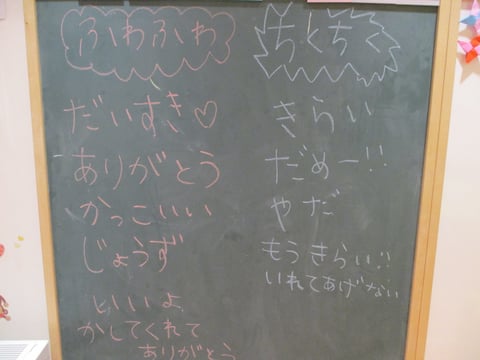 ふわふわ
だいすき♡
ありがとう
かっこいい
じょうず
いいよ
かしてくれて
ありがとう
ちくちく
きらい
だめー!!
やだ
もうきらい!!
いれてあげない